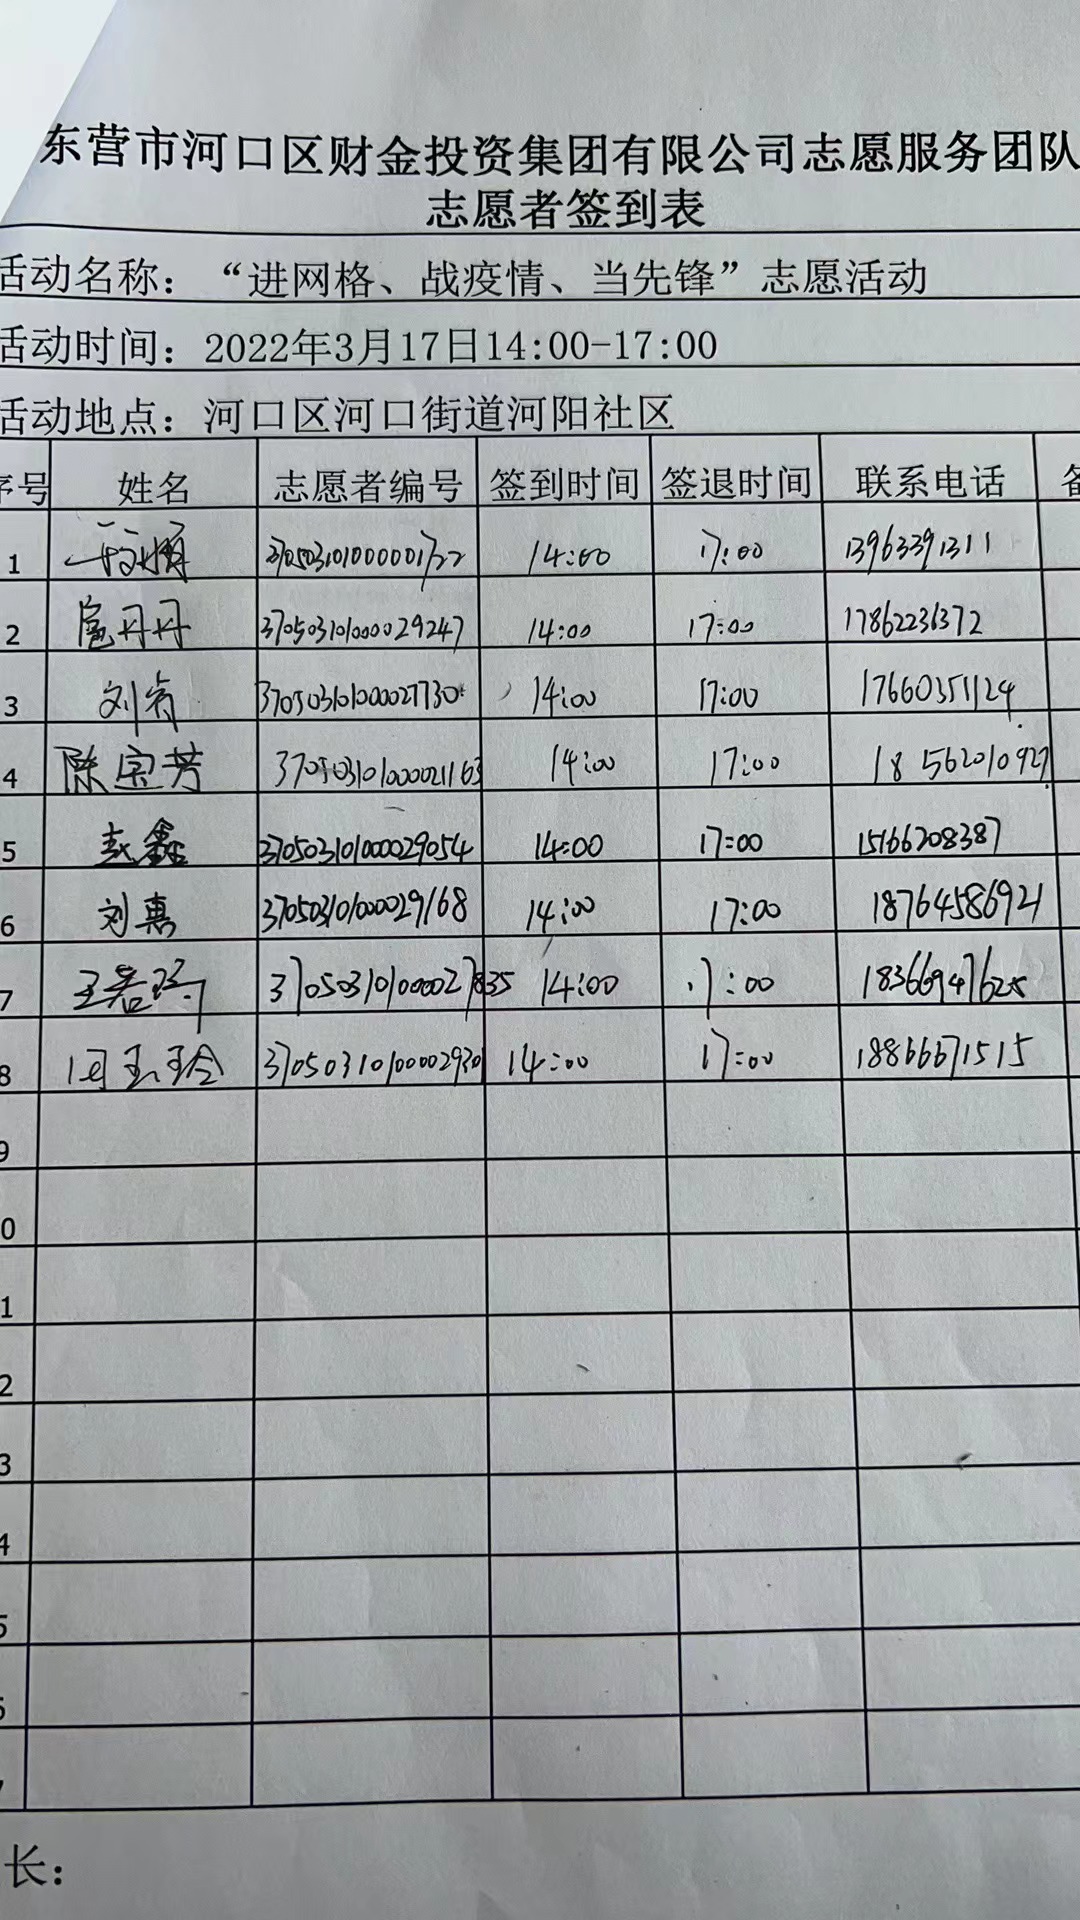 东营市河口区财金投资集团有限公司志愿服务团队
志愿者签到表
活动名称：“进网格、战疫情、当先锋”志愿活动
活动时间：2022年3月17日14:00-17:00
活动地点：河口区河口街道河阳社区
序号 姓名 志愿者编号 签到时间 签退时间 联系电话 备
1 370503101000001722 14:00 17:00 13963391311
2 扈丹丹 370503101000029247 14:00 17:00 17862236372
3 刘 370503101000027730 14:00 17:00 17660351124
4 陈宝芳 370503101000021163 14:00 17:00 18562010927
5 鑫 370503101000029054 14:00 17:00 15166208387
6 刘惠 370503101000029168 14:00 17:00 18764586921
7 王君 370503101000027835 14:00 17:00 18366947625
8 14:00 17:00 18866671515
9
0
1
2
3
4
5
6
长：